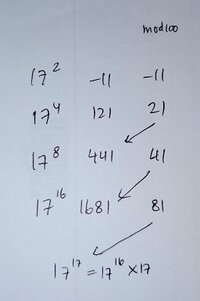 mod100
17² -11 -11
17⁴ 121 21
17⁸ 441 41
17¹⁶ 1681 81
17¹⁷ = 17¹⁶ × 17